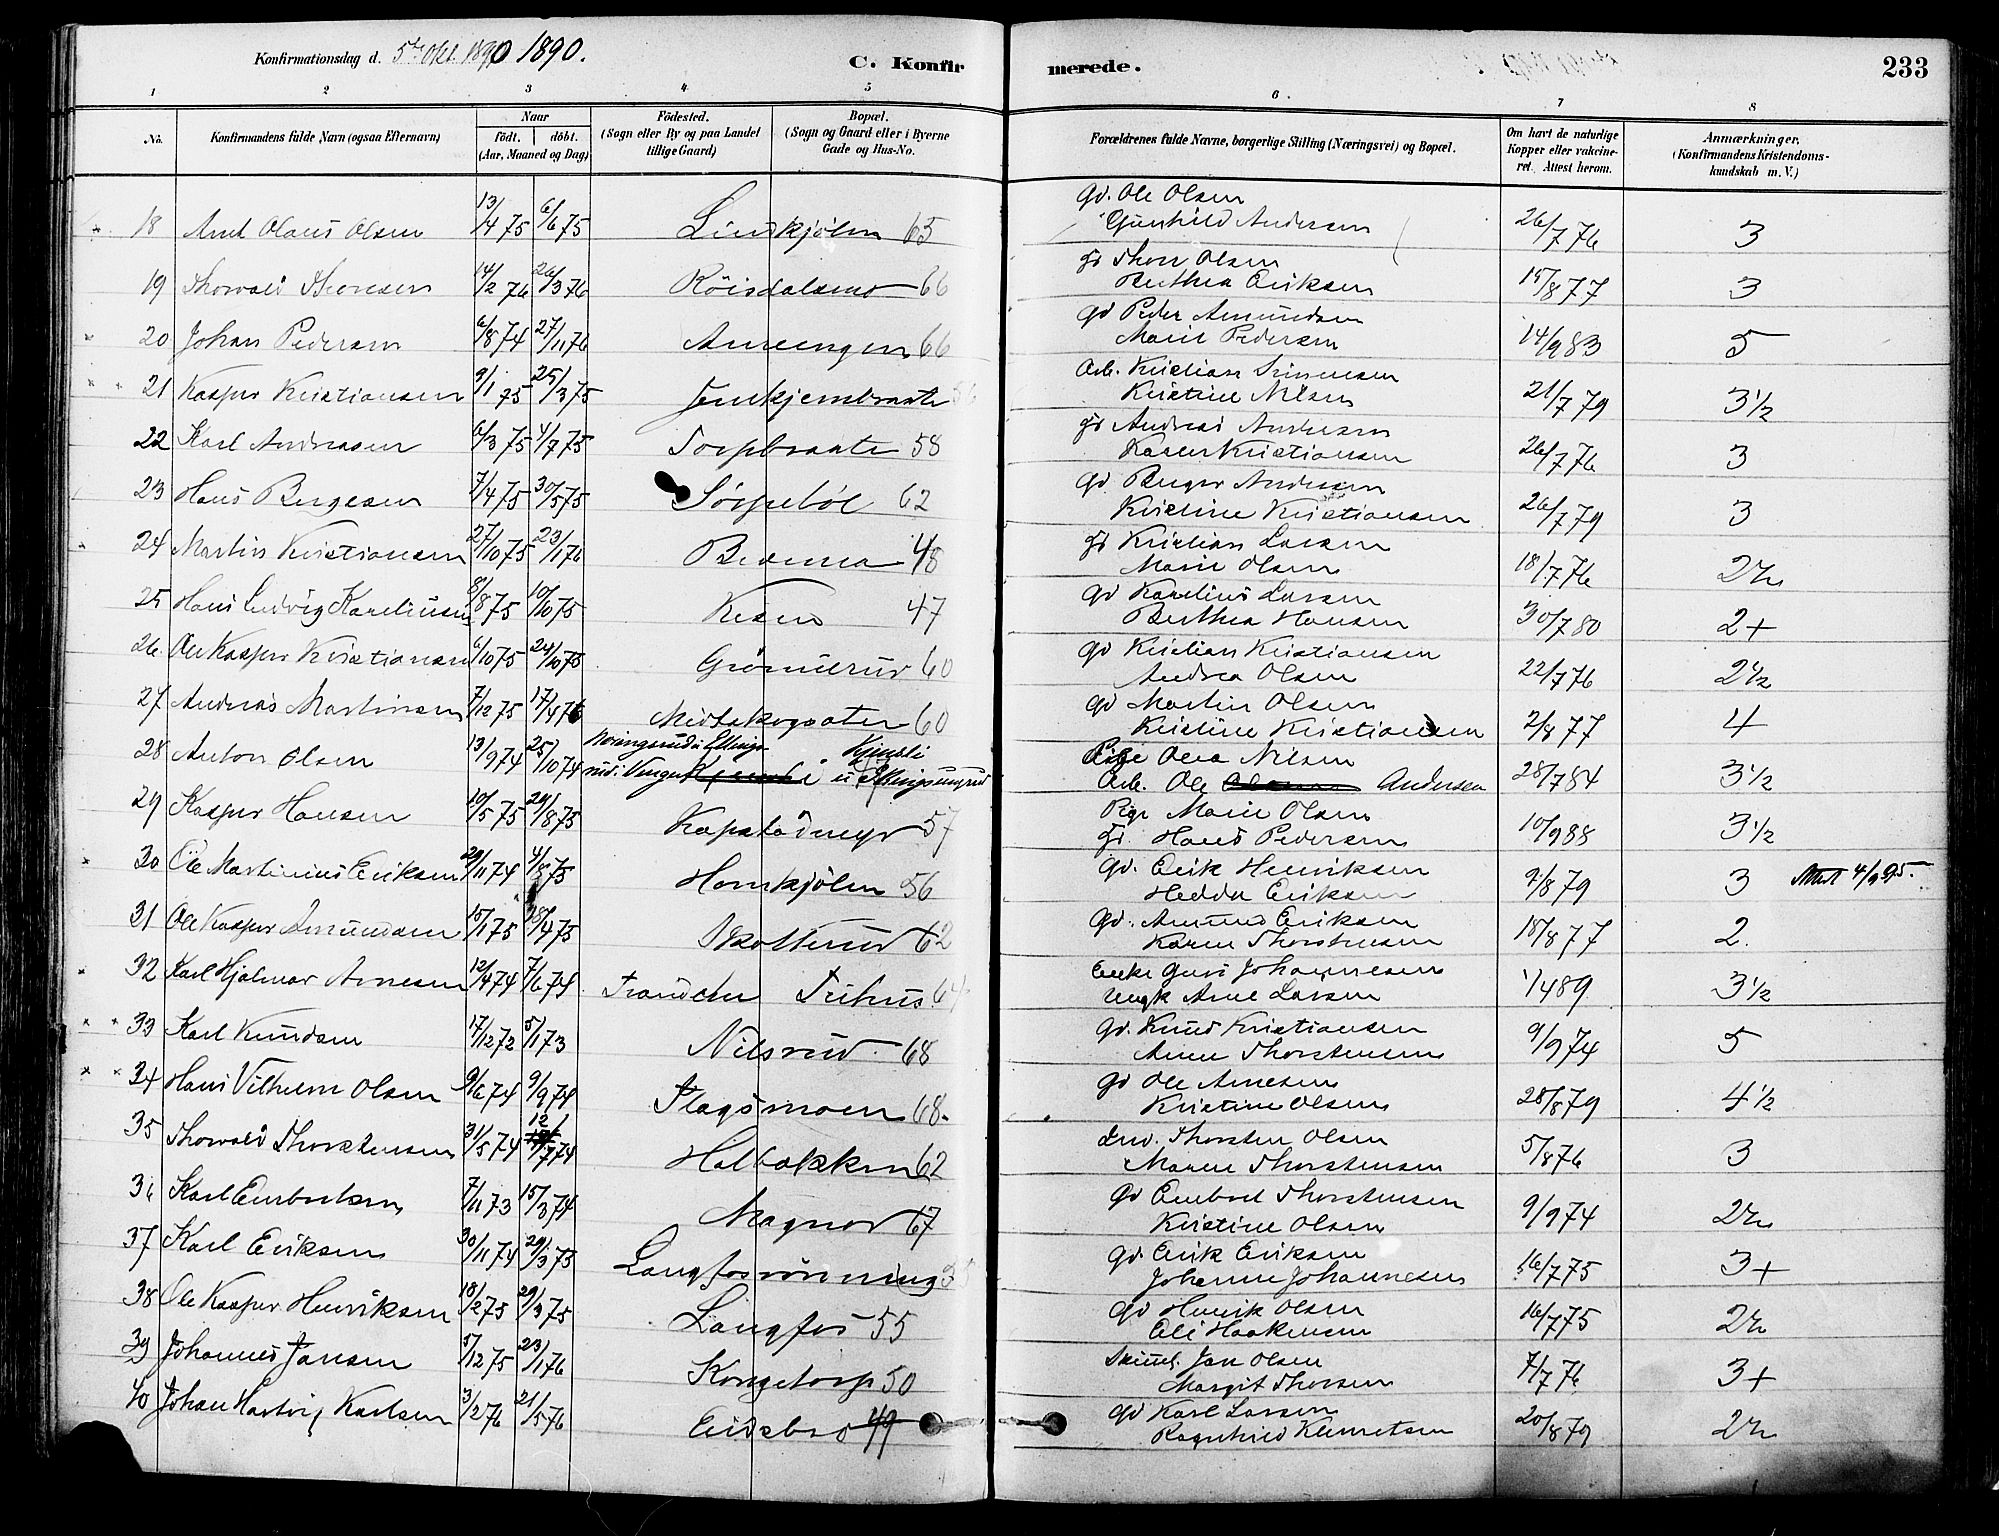 Konfirmationsdag d. 5te Okt. 1890 1890.
C. Konfirmerede.
233
1 2 3 4 5 6 7 8
No.
Konfirmandens fulde Navn (ogsaa Efternavn)
Naar
födt. döbt.
(Aar, Maaned og Dag)
Födested.
(Sogn eller By og paa Landet
tillige Gaard)
Bopæl.
(Sogn og Gaard eller i Byerne
Gade og Hus-No.
Forældrenes fulde Navne, borgerlige Stilling (Næringsvei) og Bopæl.
Om havt de naturlige
Kopper eller vakcine-
ret. Attest herom.
Anmærkninger.
(Konfirmandens Kristendoms-
kundskab m. V.)
18 Arnt Olaus Olsen 13/4 75 6/6 75 Lindkjølen 65 Gd. Ole Olsen
Gunhild Andersen 26/7 76 3
19 Thorvald Thoresen 14/2 76 26/3 76 Röisdalsmo 66 Thore Olsen
Berthea Eriksen 15/8 77 3
20 Johan Pedersen 6/8 74 27/11 76 66 Gd Peder Amundsen
Marie Pedersen 14/9 83 5
21 Kasper Kristiansen 9/1 75 25/3 75 Arb. Kristian Simensen
Kristine Nilsen 21/7 79 3 1/2
22 Karl Andreasen 6/3 75 4/7 75 Torpbraate 58 Andreas Andersen
Karen Kristiansen 26/7 76 3
23 Hans Bergesen 7/4 75 30/5 75 62 Gd. Berger Andersen
Kristine Kristiansen 26/7 79 3
24 Martin Kristiansen 27/10 75 23/1 76 48 Kristian Larsen
Marie Olsen 18/7 76
25 Hans Ludvig Kareliusen 8/8 75 10/10 75 47 Gd Karelius Larsen
Berthea Hansen 30/7 80 2+
26. Ole Kasper Kristiansen 6/10 75 24/10 75 60 Gd Kristian Kristiansen
Andrea Olsen 22/7 76 2 1/2
27 Andreas Martinsen 7/12 75 17/4 76 Midtskogsæter 60 Gd Martin Olsen
Kristine Kristiansen 2/8 77 4
28 Anton Olsen 13/9 74 25/10 74 Pige Olea Nilsen
Arb. Ole Andersen 28/7 84 3 1/2
29 Kasper Hansen 10/5 75 29/8 75 Kapstadmyr 57 Pige Marie Olsen
Hans Pedersen 10/9 88 3 1/2
30 Ole Martinius Eriksen 29/11 74 4/8 75 Hornkjølen 56 Gd. Erik Henriksen
Hedda Eriksen 9/8 79 3 Attest 4/9 95.
31 Ole Kasper Amundsen 15/1 75 18/4 75 Skotterud 62 Gd. Amund Eriksen
Karen Thorstensen 18/8 77 2.
32 Karl Hjalmar Arnesen 12/4 74 7/6 74 Trondhu 64 Enke Guri Johannesen
Ungk Arne Larsen 3 1/2
33 Karl Knudsen 17/12 72 5/1 73 Nilsrud 68 Gd. Knud Kristiansen
Anne Thorstensen 9/9 74 5
34 Hans Vilhelm Olsen 9/6 74 9/9 74 Flagsmoen 68. Gd Ole Arnesen
Kristine Olsen 28/8 79 4 1/2
35 Thorvald Thorstensen 31/5 74 12/7 74 Holbakken 62 Ind. Thorsten Olsen
Maren Thorstensen 5/8 76 3
36 Karl Embretsen 7/11 73 15/3 74 Magnor 67 Gd Embret Thorstensen
Kristine Olsen 9/9 74
37 Karl Eriksen 30/11 74 29/3 75 Langfosrönning Gd. Erik Eriksen
Johanne Johannesen 16/7 75 3+
38 Ole Kasper Henriksen 18/2 75 29/3 75 Langfos 55 Gd Henrik Olsen
Eli Haakensen 16/7 75
39 Johannes Jansen 5/12 75 23/1 76 Kongetorp 50 Jan Olsen
Margit Thorsen 7/7 76 3+
40 Johan Hartvig Karlsen 3/2 76 21/5 76 Eidsbro 49 Gd Karl Larsen
Ragnhild 20/8 79